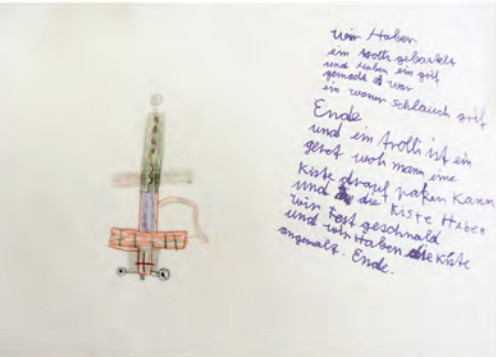 wir Haben
ein trolli gebastelt
und Haben ein grif
gemacht es war
ein waner schlauch grif
Ende
und ein trolli ist ein
geret woh mann eine
Kiste drauf paken Kann
und die Kiste Haben
wir fest geschnald
und wir Haben die Kiste
angemalt. Ende.